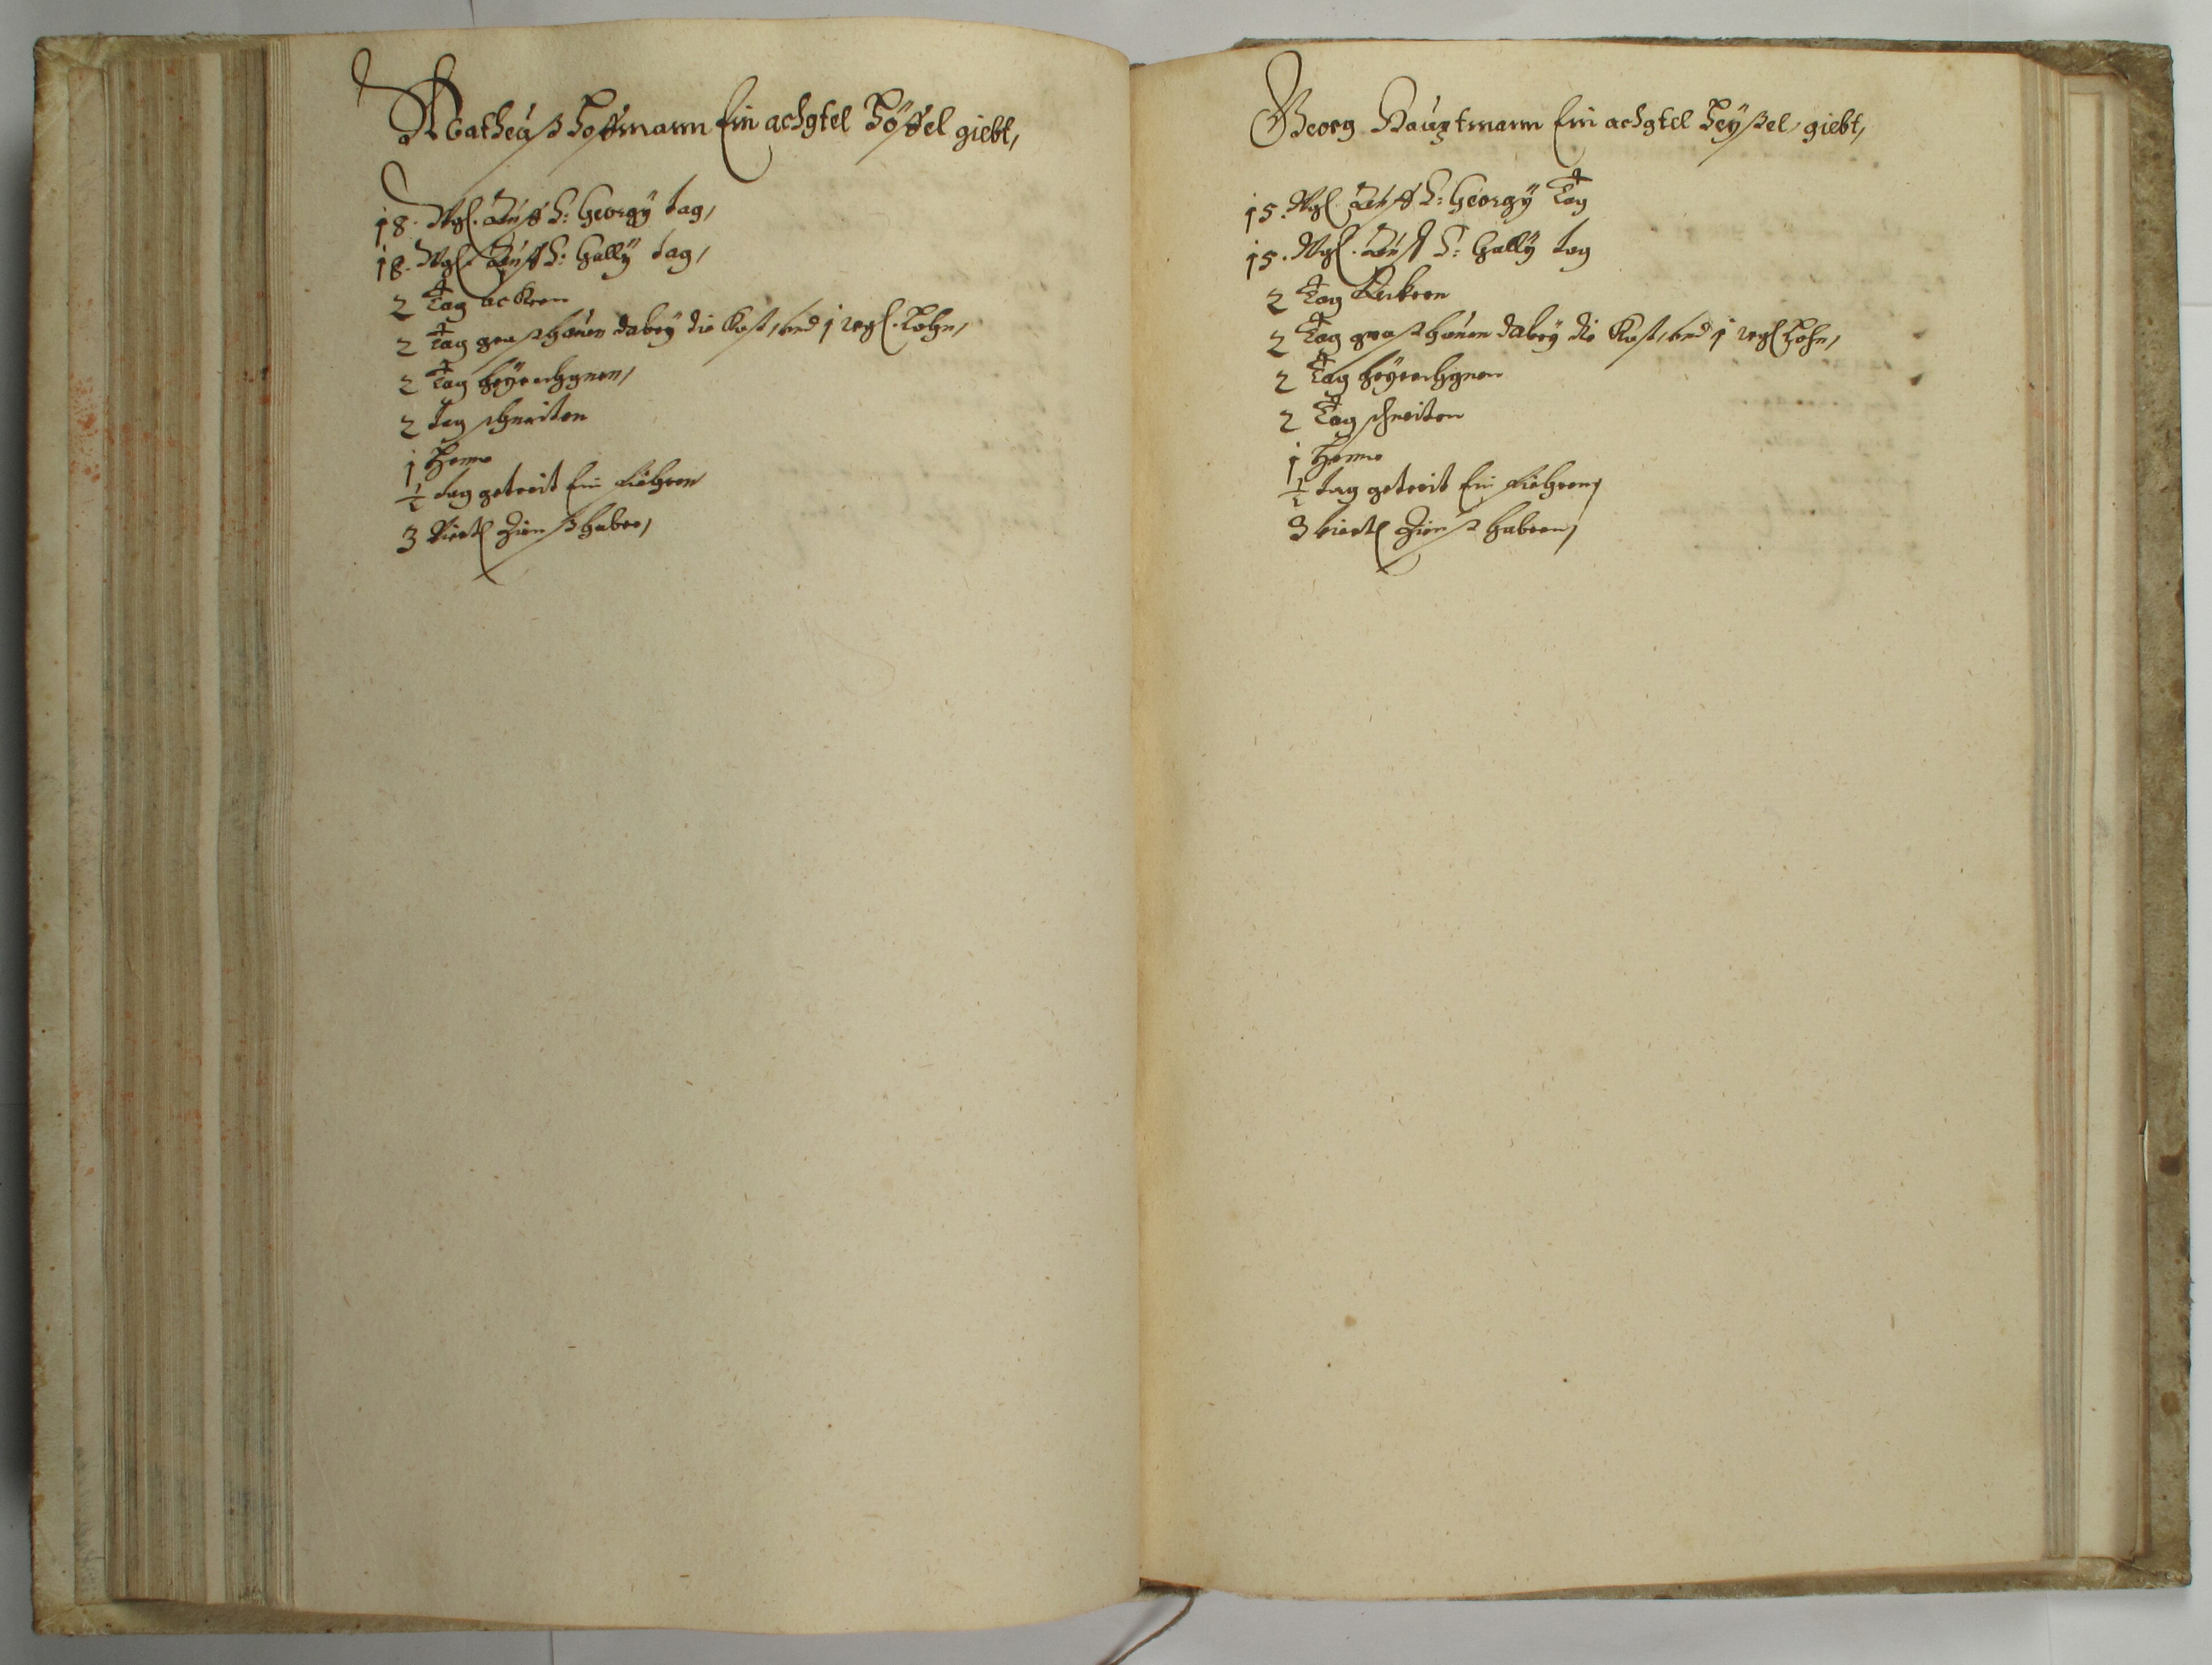 Matheuß Hoffmann Ein achtel Höffel giebt,
18. Wgl. Auff S: Georgÿ tag,
18. Wgl. Auff S: Gallÿ tag,
2 Tag ackern
2 Tag graßhauen dabeÿ die Kost, und 1 wgl. Lohn,
2 Tag heÿrechgnen,
2 tag schneiten
1 Henne
½ tag getreit Ein führen
3 Viertl Zinßhaber,
Georg Hauptmann Ein achtel giebt,
15. Wgl. Auff S: Georgÿ Tag
15. Wgl. Auff S: Gallÿ tag
2 Tag Ackern
2 Tag graßhauen dabeÿ die Kost, und 1 wgl Lohn,
2 Tag heÿrechgnen
2 Tag schneiten
1 Henne
½ tag getreit Ein führen,
3 viertl Zinß habern,